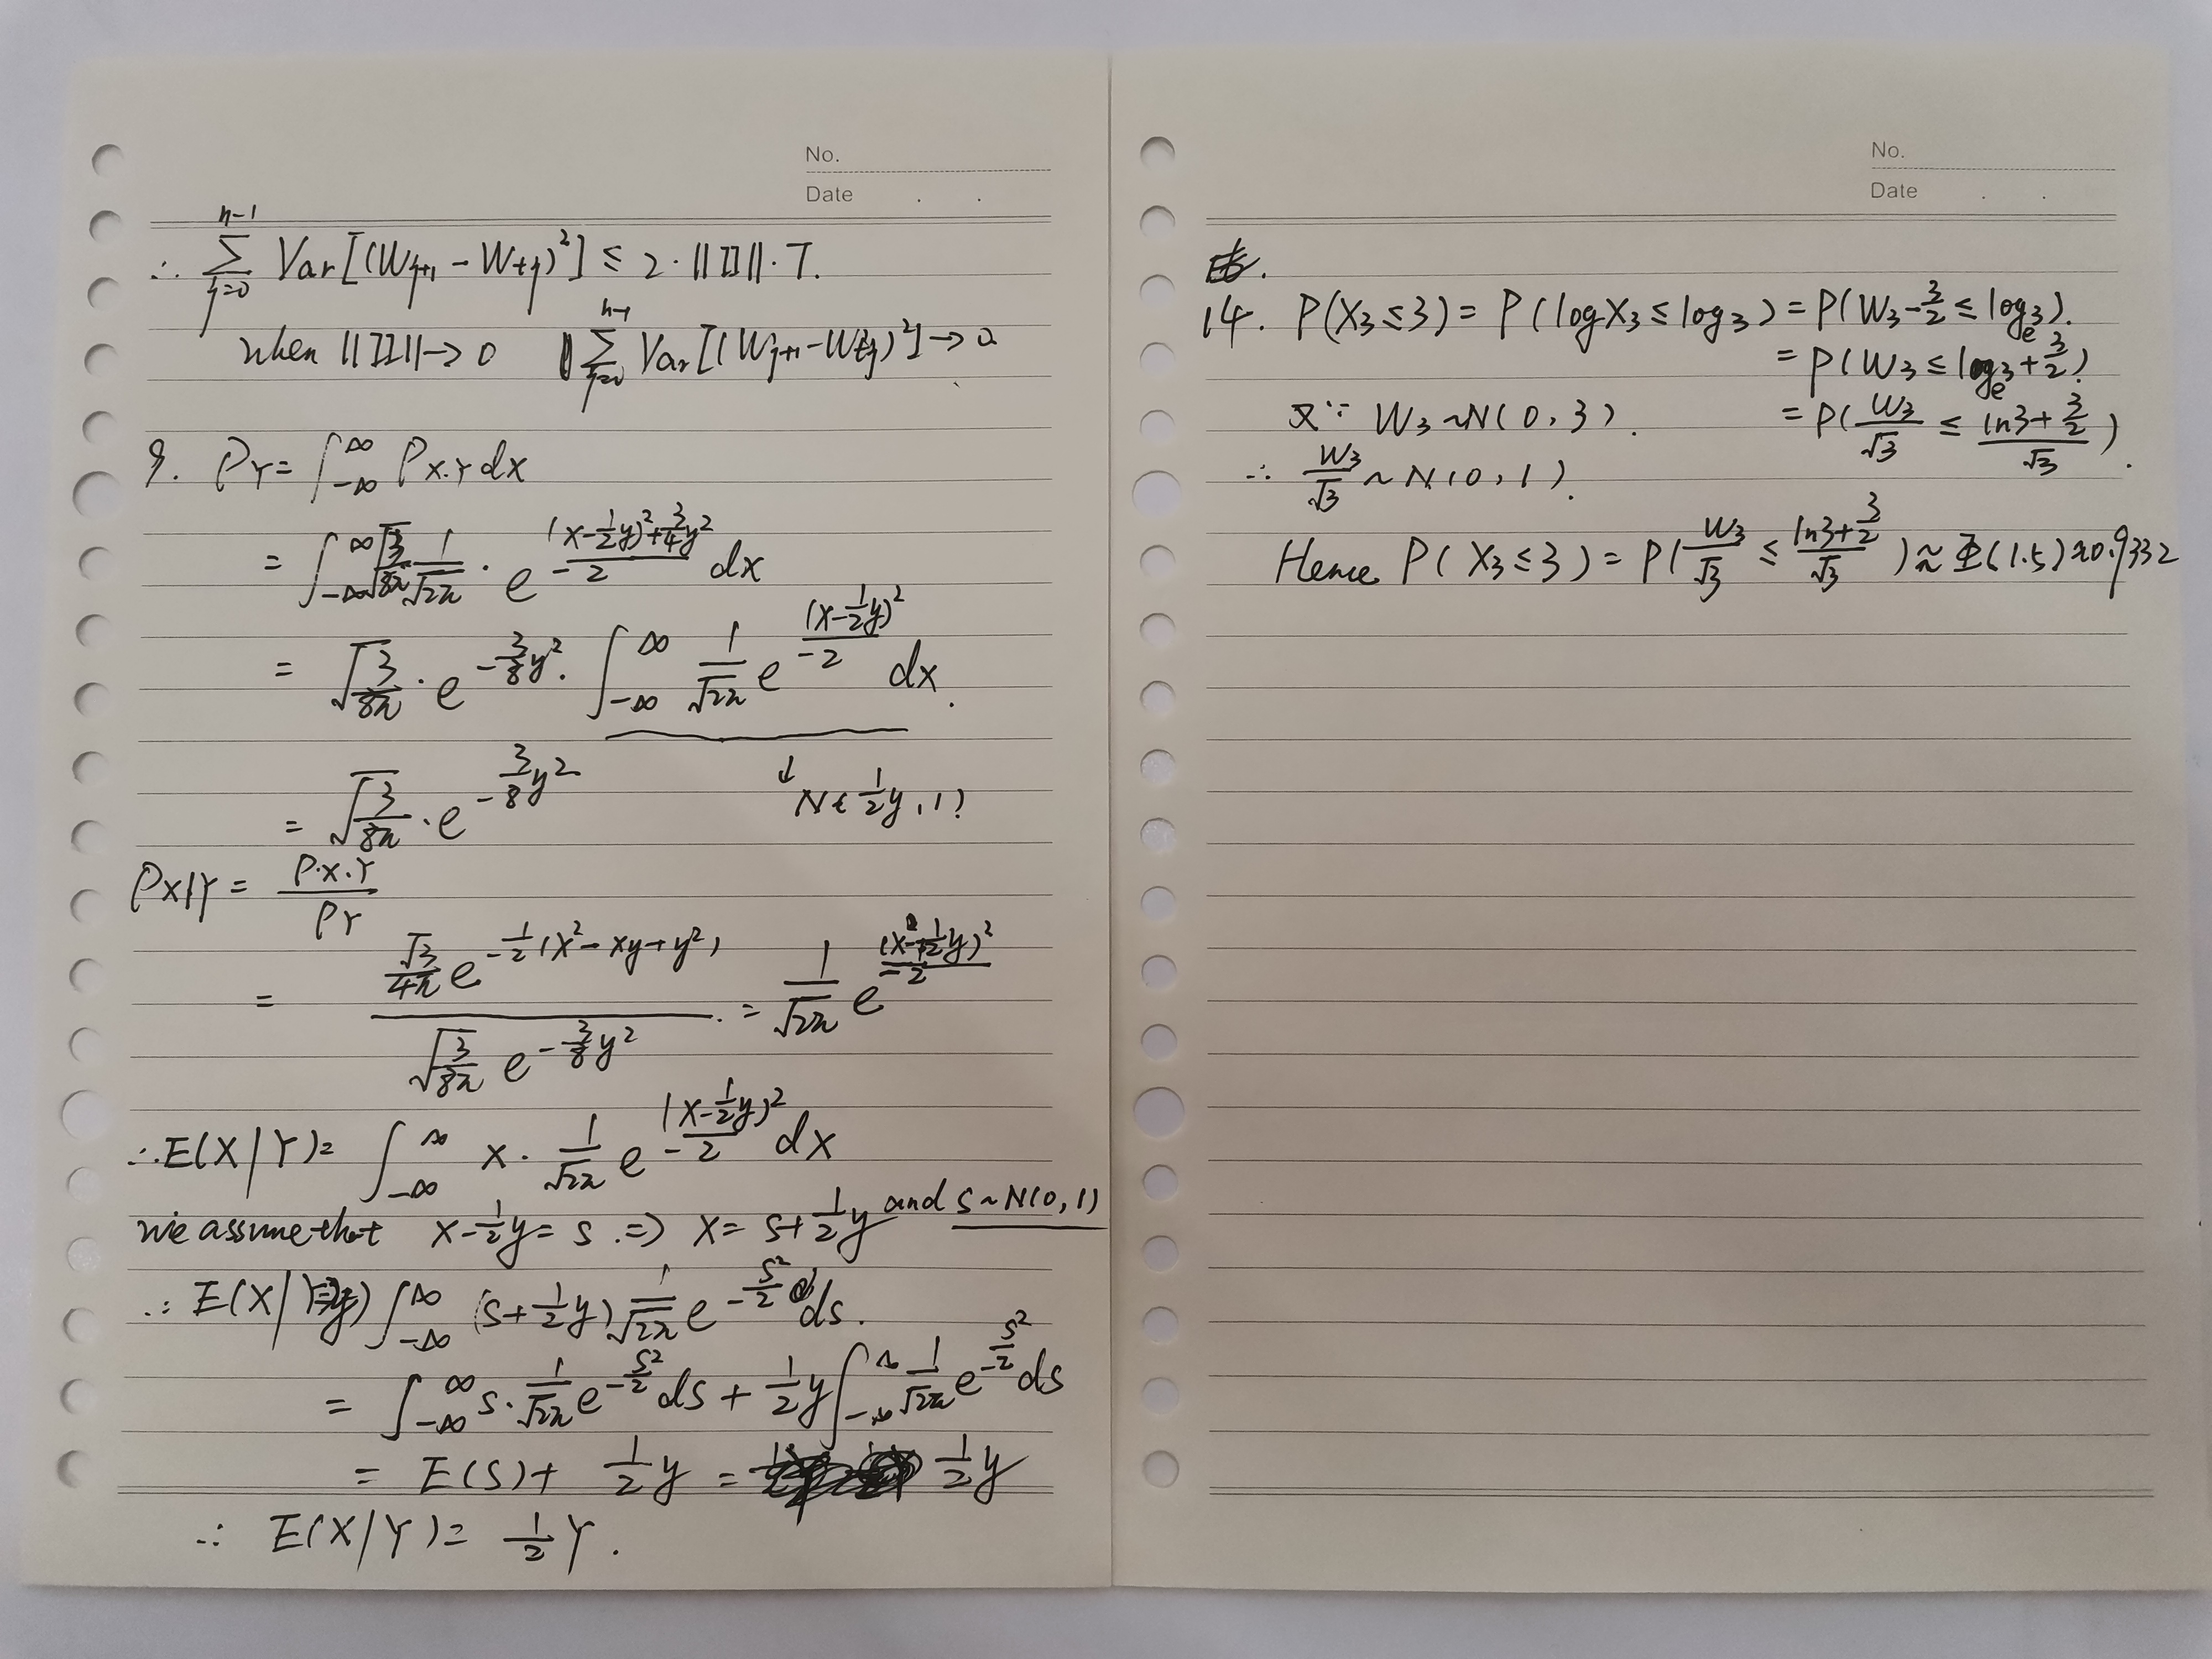 No.
Date . .
∴ \sum_{j=0}^{n-1} Var[(W_{j+1} - W_{tj})^2] ≤ 2·||Π||·T.
when ||Π|| → 0 \sum_{j=0}^{n-1} Var[(W_{j+1} - W_{tj})^2] → 0
9. P_Y = \int_{-∞}^{∞} P_{X.Y} dx
= \int_{-∞}^{∞} \sqrt{\frac{3}{8π}} \frac{1}{\sqrt{2π}} · e^{-\frac{(x-\frac{1}{2}y)^2+\frac{3}{4}y^2}{2}} dx
= \sqrt{\frac{3}{8π}} · e^{-\frac{3}{8}y^2} · \int_{-∞}^{∞} \frac{1}{\sqrt{2π}} e^{\frac{(x-\frac{1}{2}y)^2}{-2}} dx.
↓
N(\frac{1}{2}y, 1)
= \sqrt{\frac{3}{8π}} · e^{-\frac{3}{8}y^2}
P_{X|Y} = \frac{P_{X.Y}}{P_Y}
= \frac{\frac{\sqrt{3}}{4π} e^{-\frac{1}{2}(x^2-xy+y^2)}}{\sqrt{\frac{3}{8π}} e^{-\frac{3}{8}y^2}} . = \frac{1}{\sqrt{2π}} e^{\frac{(x-\frac{1}{2}y)^2}{-2}}
∴ E(X|Y) = \int_{-∞}^{∞} x · \frac{1}{\sqrt{2π}} e^{-\frac{(x-\frac{1}{2}y)^2}{2}} dx
we assume that x-\frac{1}{2}y = s. ⇒ x = s+\frac{1}{2}y and s ~ N(0, 1)
∴ E(X|Y=y) \int_{-∞}^{∞} (s+\frac{1}{2}y) \frac{1}{\sqrt{2π}} e^{-\frac{s^2}{2}} ds.
= \int_{-∞}^{∞} s · \frac{1}{\sqrt{2π}} e^{-\frac{s^2}{2}} ds + \frac{1}{2}y \int_{-∞}^{∞} \frac{1}{\sqrt{2π}} e^{-\frac{s^2}{2}} ds
= E(S) + \frac{1}{2}y = \frac{1}{2}y
∴ E(X|Y) = \frac{1}{2}Y.
No.
Date . .
14. P(X_3 ≤ 3) = P(log X_3 ≤ log 3) = P(W_3 - \frac{3}{2} ≤ log_e 3).
= P(W_3 ≤ log_e 3 + \frac{3}{2})
又∵ W_3 ~ N(0, 3). = P(\frac{W_3}{\sqrt{3}} ≤ \frac{ln3+\frac{3}{2}}{\sqrt{3}}).
∴ \frac{W_3}{\sqrt{3}} ~ N(0, 1).
Hence P(X_3 ≤ 3) = P(\frac{W_3}{\sqrt{3}} ≤ \frac{ln3+\frac{3}{2}}{\sqrt{3}}) ≈ Φ(1.5) ≈ 0.9332